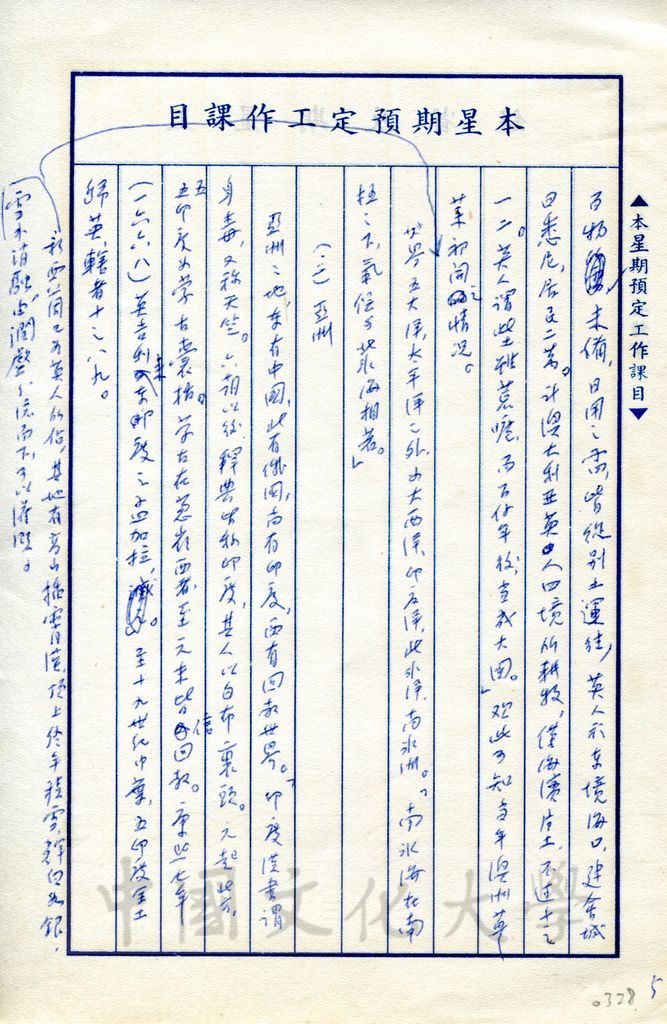 目課作工定預期星本
▲本星期預定工作課目▼
百物未備，日用之需，皆從別土運往，英人於東境海口，建會城
曰悉尼，居民二萬。計澳大利亞英人四境所耕牧，僅海濱片土，不過十之
一二。英人謂此土雖荒曠，而百餘年後，當成大國。」觀此可知當年澳洲草
萊初開之情況。
世界五大洋，太平洋之外，為大西洋，印度洋，北冰洋，南冰洲。「南冰海在南
極之下，氣候與北冰海相若。」
（二）亞洲
亞洲之地東有中國，北有俄國，南有印度，西有回教世界。印度漢書謂
身毒，又稱天竺。六朝以後，釋典皆稱印度，其人以白布裹頭。元起北方
五印度為蒙古囊括。蒙古在蔥嶺西者至元末皆信回教。康熙七年
（一六六八）英吉利來東印度之孟加拉，至十九世紀中葉，五印度全土
歸英轄者十之八九。
新西蘭已為英人所佔，其地有高山插霄漢，頂上終年積雪，輝白如銀，
雪水消融，由澗壑分流而下，可以灌溉。
中國文化大學
0328
5